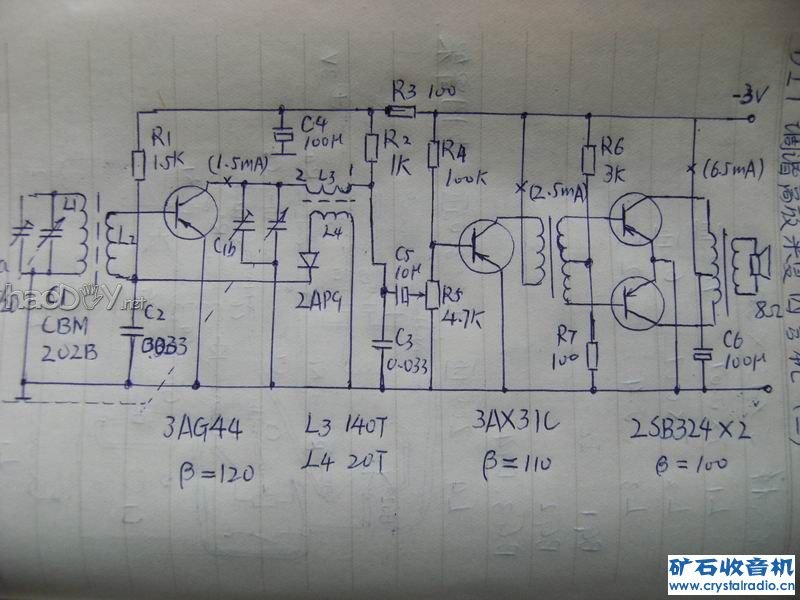 R3 100
-3V
R1
1.5K
C4
100μ
R2
1K
R4
100K
R6
3K
(1.5mA)
2 L3 1
(2.5mA)
(65mA)
L1
L2
C1b
L4
2AP9
C5
10μ
R5
4.7K
8Ω
C1
CBM
202B
C2
C3
0.033
R7
100
C6
100μ
3AG44
β=120
L3 140T
L4 20T
3AX31C
β=110
2SB324×2
β=100
haoDIY.net
矿石收音机
www.crystalradio.cn